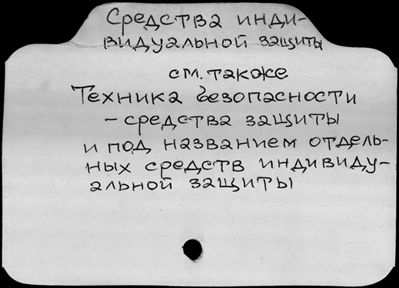 Средства инди-
видуальной защиты
см. также
Техника безопасности
- средства защиты
и под названием отдель-
ных средств индивиду-
альной защиты